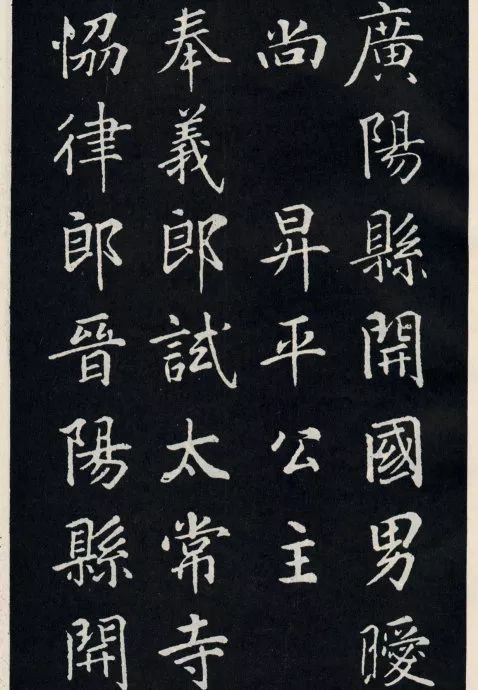 廣陽縣開國男曖
尚 昇平公主
奉義郎試太常寺
恊律郎晉陽縣開